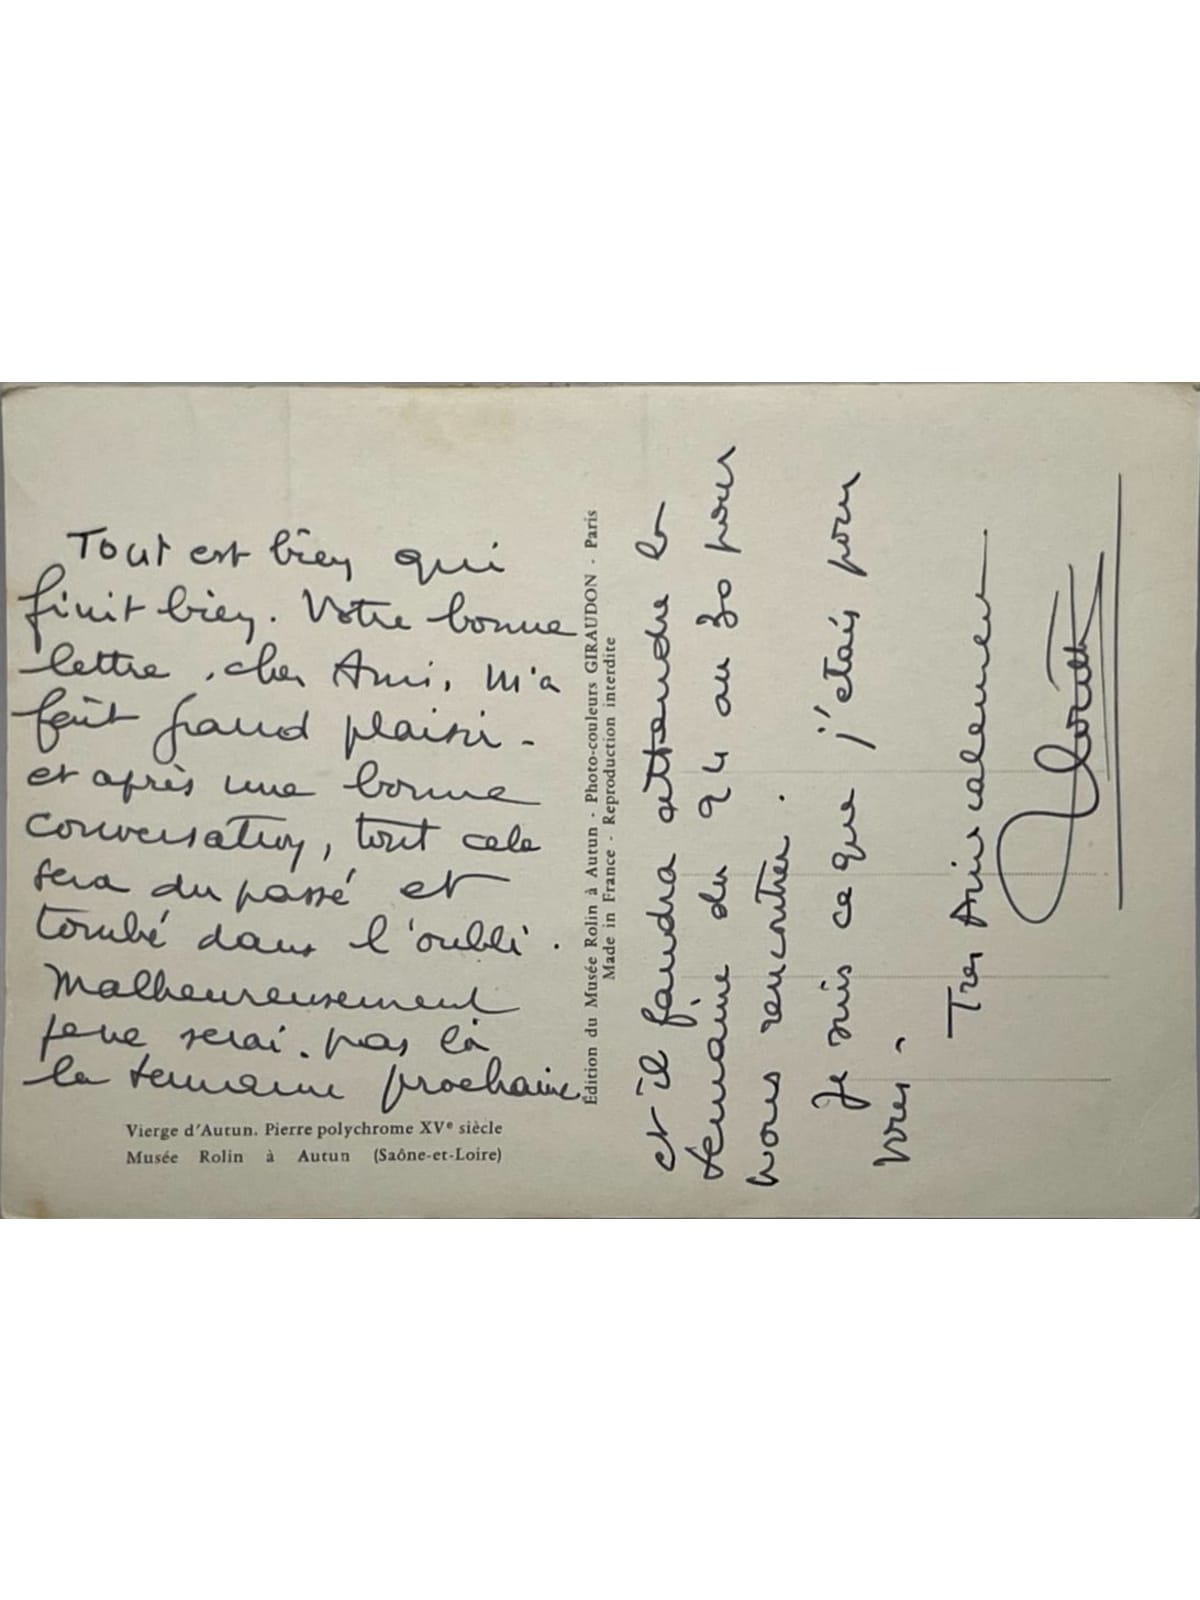 Tout est bien qui
finit bien. Votre bonne
lettre, cher Ami, m'a
fait grand plaisir -
et après une bonne
conversation, tout cela
sera du passé et
tombé dans l'oubli.
Malheureusement
je ne serai pas là
la semaine prochaine
Vierge d'Autun. Pierre polychrome XVe siècle
Musée Rolin à Autun (Saône-et-Loire)
Édition du Musée Rolin à Autun - Photo-couleurs GIRAUDON - Paris
Made in France - Reproduction interdite
et il faudra attendre la
semaine du 24 au 30 pour
nous rencontrer.
Je suis ce que j'étais pour
vous -
Très Amicalement